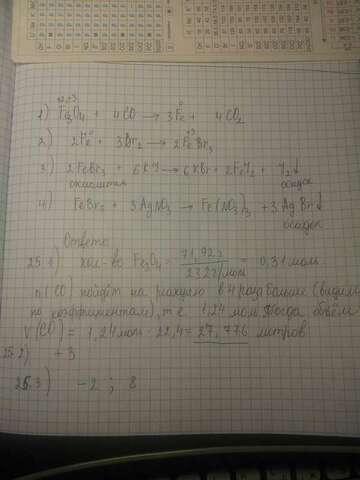 +2,+3 0
1) Fe3O4 + 4CO → 3Fe + 4CO2
0 +3
2) 2Fe + 3Br2 → 2FeBr3
3) 2FeBr3 + 6KI → 6KBr + 2FeI2 + I2↓
окислитель осадок
4) FeBr3 + 3AgNO3 → Fe(NO3)3 + 3AgBr↓
осадок
Ответы
25.1) кол-во Fe3O4 = 71,92г / 232г/моль = 0,31моль
n(CO) пойдёт на реакцию в 4 раза больше (видим
по коэффициентам), т е 1,24 моль. Тогда объём
V(CO) = 1,24моль · 22,4 = 27,776 литров
25.2) +3
25.3) -2 ; 8